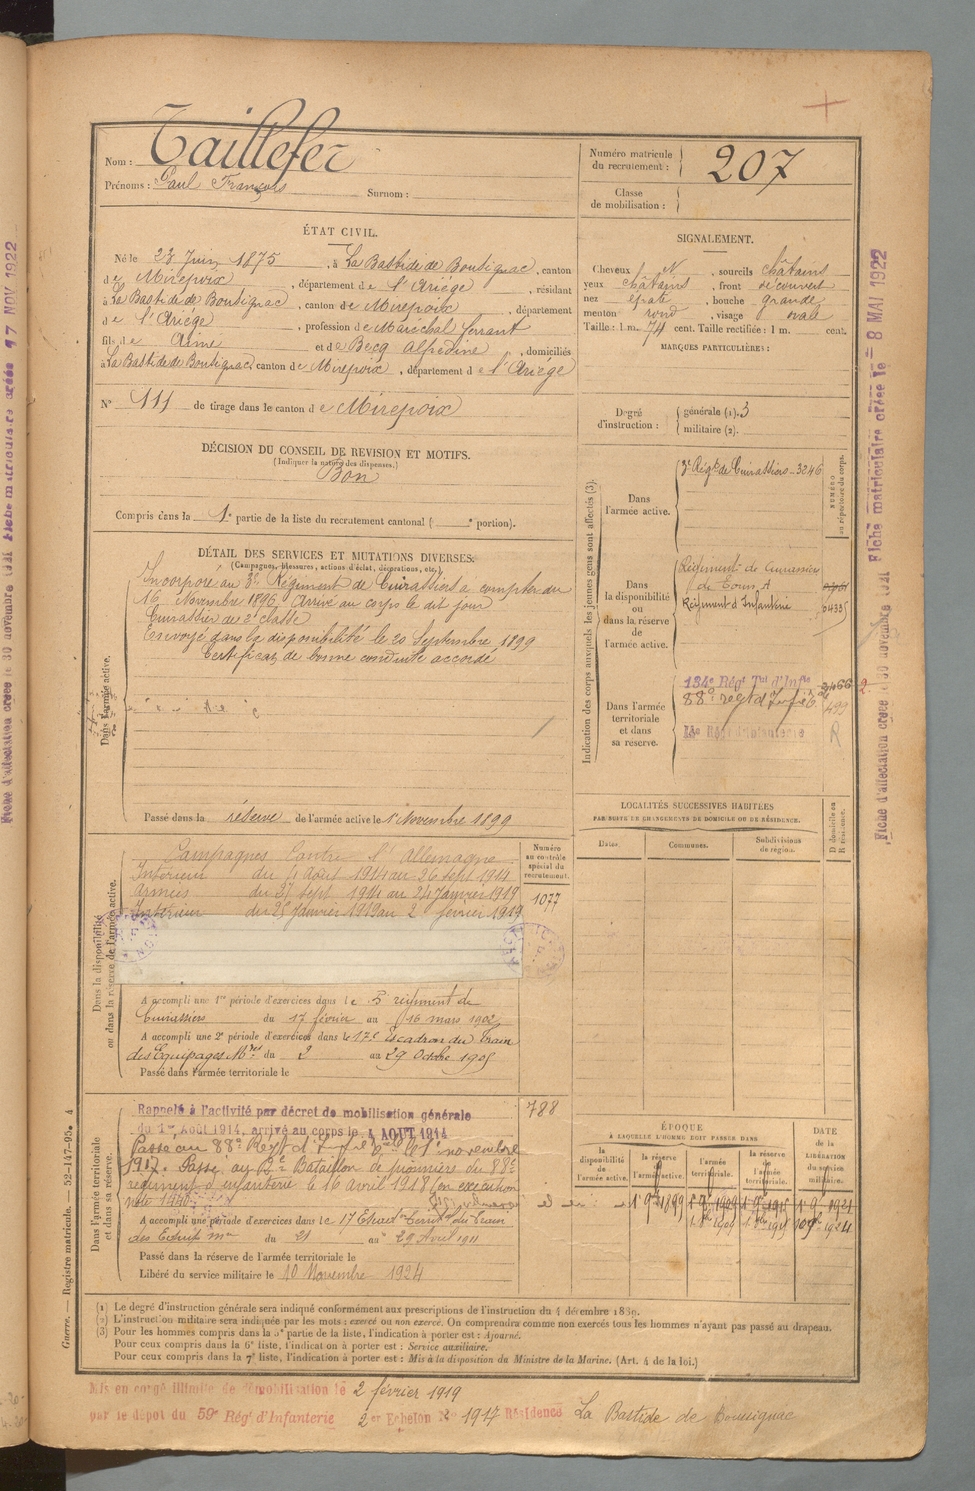 Nom : Taillefer
Prénoms : Paul François Surnom :
Numéro matricule du recrutement : 207
Classe de mobilisation :
ÉTAT CIVIL.
Né le 23 Juin 1875, à La Bastide de Bousignac, canton
de Mirepoix, département de l'Ariège, résidant
à La Bastide de Bousignac, canton de Mirepoix, département
de l'Ariège, profession de Maréchal ferrant
fils de Aimé et de Becq Alfrédine, domiciliés
à La Bastide de Bousignac, canton de Mirepoix, département de l'Ariège
N° 111 de tirage dans le canton de Mirepoix
SIGNALEMENT.
Cheveux N, sourcils châtains
yeux châtains, front découvert
nez épaté, bouche grande
menton rond, visage ovale
Taille : 1 m. 74 cent. Taille rectifiée : 1 m. cent.
MARQUES PARTICULIÈRES :
Degré d'instruction : générale (1). 3
militaire (2).
DÉCISION DU CONSEIL DE REVISION ET MOTIFS.
(Indiquer la nature des dispenses.)
Bon
Compris dans la 1e partie de la liste du recrutement cantonal ( e portion).
DÉTAIL DES SERVICES ET MUTATIONS DIVERSES.
(Campagnes, blessures, actions d'éclat, décorations, etc.)
Dans l'armée active.
Incorporé au 3e Régiment de Cuirassiers à compter du
16 Novembre 1896, Arrivé au corps le dit jour
Cuirassier de 2e classe
Envoyé dans la disponibilité le 20 Septembre 1899
Certificat de bonne conduite accordé
Passé dans la réserve de l'armée active le 1 Novembre 1899
Indication des corps auxquels les jeunes gens sont affectés (3).
NUMÉRO au répertoire du corps.
Dans l'armée active.
3e Régt de Cuirassiers - 3246
Dans la disponibilité ou dans la réserve de l'armée active.
Régiment de Cuirassiers
Régiment d'Infanterie 04335
Dans l'armée territoriale et dans sa réserve.
134e Régt Tal d'Infie 2466
88e regt d'Infie 499
R
Dans la disponibilité ou dans la réserve de l'armée active.
Campagnes Contre l'Allemagne
Intérieur du 4 août 1914 au 26 sept 1914
Armées du 27 sept 1914 au 24 Janvier 1919
Intérieur du 25 Janvier 1919 au 2 février 1919
Numéro au contrôle spécial du recrutement.
1077
A accompli une 1re période d'exercices dans le 3 régiment de
Cuirassiers du 17 février au 16 mars 1902
A accompli une 2e période d'exercices dans le 17e Escadron du Train
des Equipages Mres du 2 au 29 Octobre 1905
Passé dans l'armée territoriale le
LOCALITÉS SUCCESSIVES HABITÉES
PAR SUITE DE CHANGEMENTS DE DOMICILE OU DE RÉSIDENCE.
Dates. Communes. Subdivisions de région. D domicile ou R résidence.
Dans l'armée territoriale et dans sa réserve.
Rappelé à l'activité par décret de mobilisation générale
du 1er AOUT 1914, arrivé au corps le 4 AOUT 1914
788
Passé au 88e Regt d'Infie Tale le 1er novembre
1917. Passé au Be Bataillon de pionniers du 88e
régiment d'infanterie le 16 avril 1918 (en exécution
A accompli une période d'exercices dans le 17 Escad. Territ. du Train
des Equip. mres du 21 au 29 Avril 1911
Passé dans la réserve de l'armée territoriale le
Libéré du service militaire le 10 Novembre 1924
ÉPOQUE
À LAQUELLE L'HOMME DOIT PASSER DANS
la disponibilité de l'armée active. la réserve de l'armée active. l'armée territoriale. la réserve de l'armée territoriale.
DATE de la LIBÉRATION du service militaire.
1er 9bre 1899 1er 9bre 1909 1er 9bre 1915 1er 9bre 1921
(1) Le degré d'instruction générale sera indiqué conformément aux prescriptions de l'instruction du 4 décembre 1889.
(2) L'instruction militaire sera indiquée par les mots : exercé ou non exercé. On comprendra comme non exercés tous les hommes n'ayant pas passé au drapeau.
(3) Pour les hommes compris dans la 5e partie de la liste, l'indication à porter est : Ajourné.
Pour ceux compris dans la 6e liste, l'indication à porter est : Service auxiliaire.
Pour ceux compris dans la 7e liste, l'indication à porter est : Mis à la disposition du Ministre de la Marine. (Art. 4 de la loi.)
Mis en congé illimité de démobilisation le 2 février 1919
par le dépôt du 59e Régt d'Infanterie 2er Echelon No 1917 Résidence La Bastide de Bousignac
Guerre. — Registre matricule. — 52-147-95. 4
Fiche d'affectation créée le 30 novembre 1921 Fiche matriculaire créée le 8 MAI 1922
Fiche d'affectation créée le 30 novembre 1921 Fiche matriculaire créée 17 NOV 1922